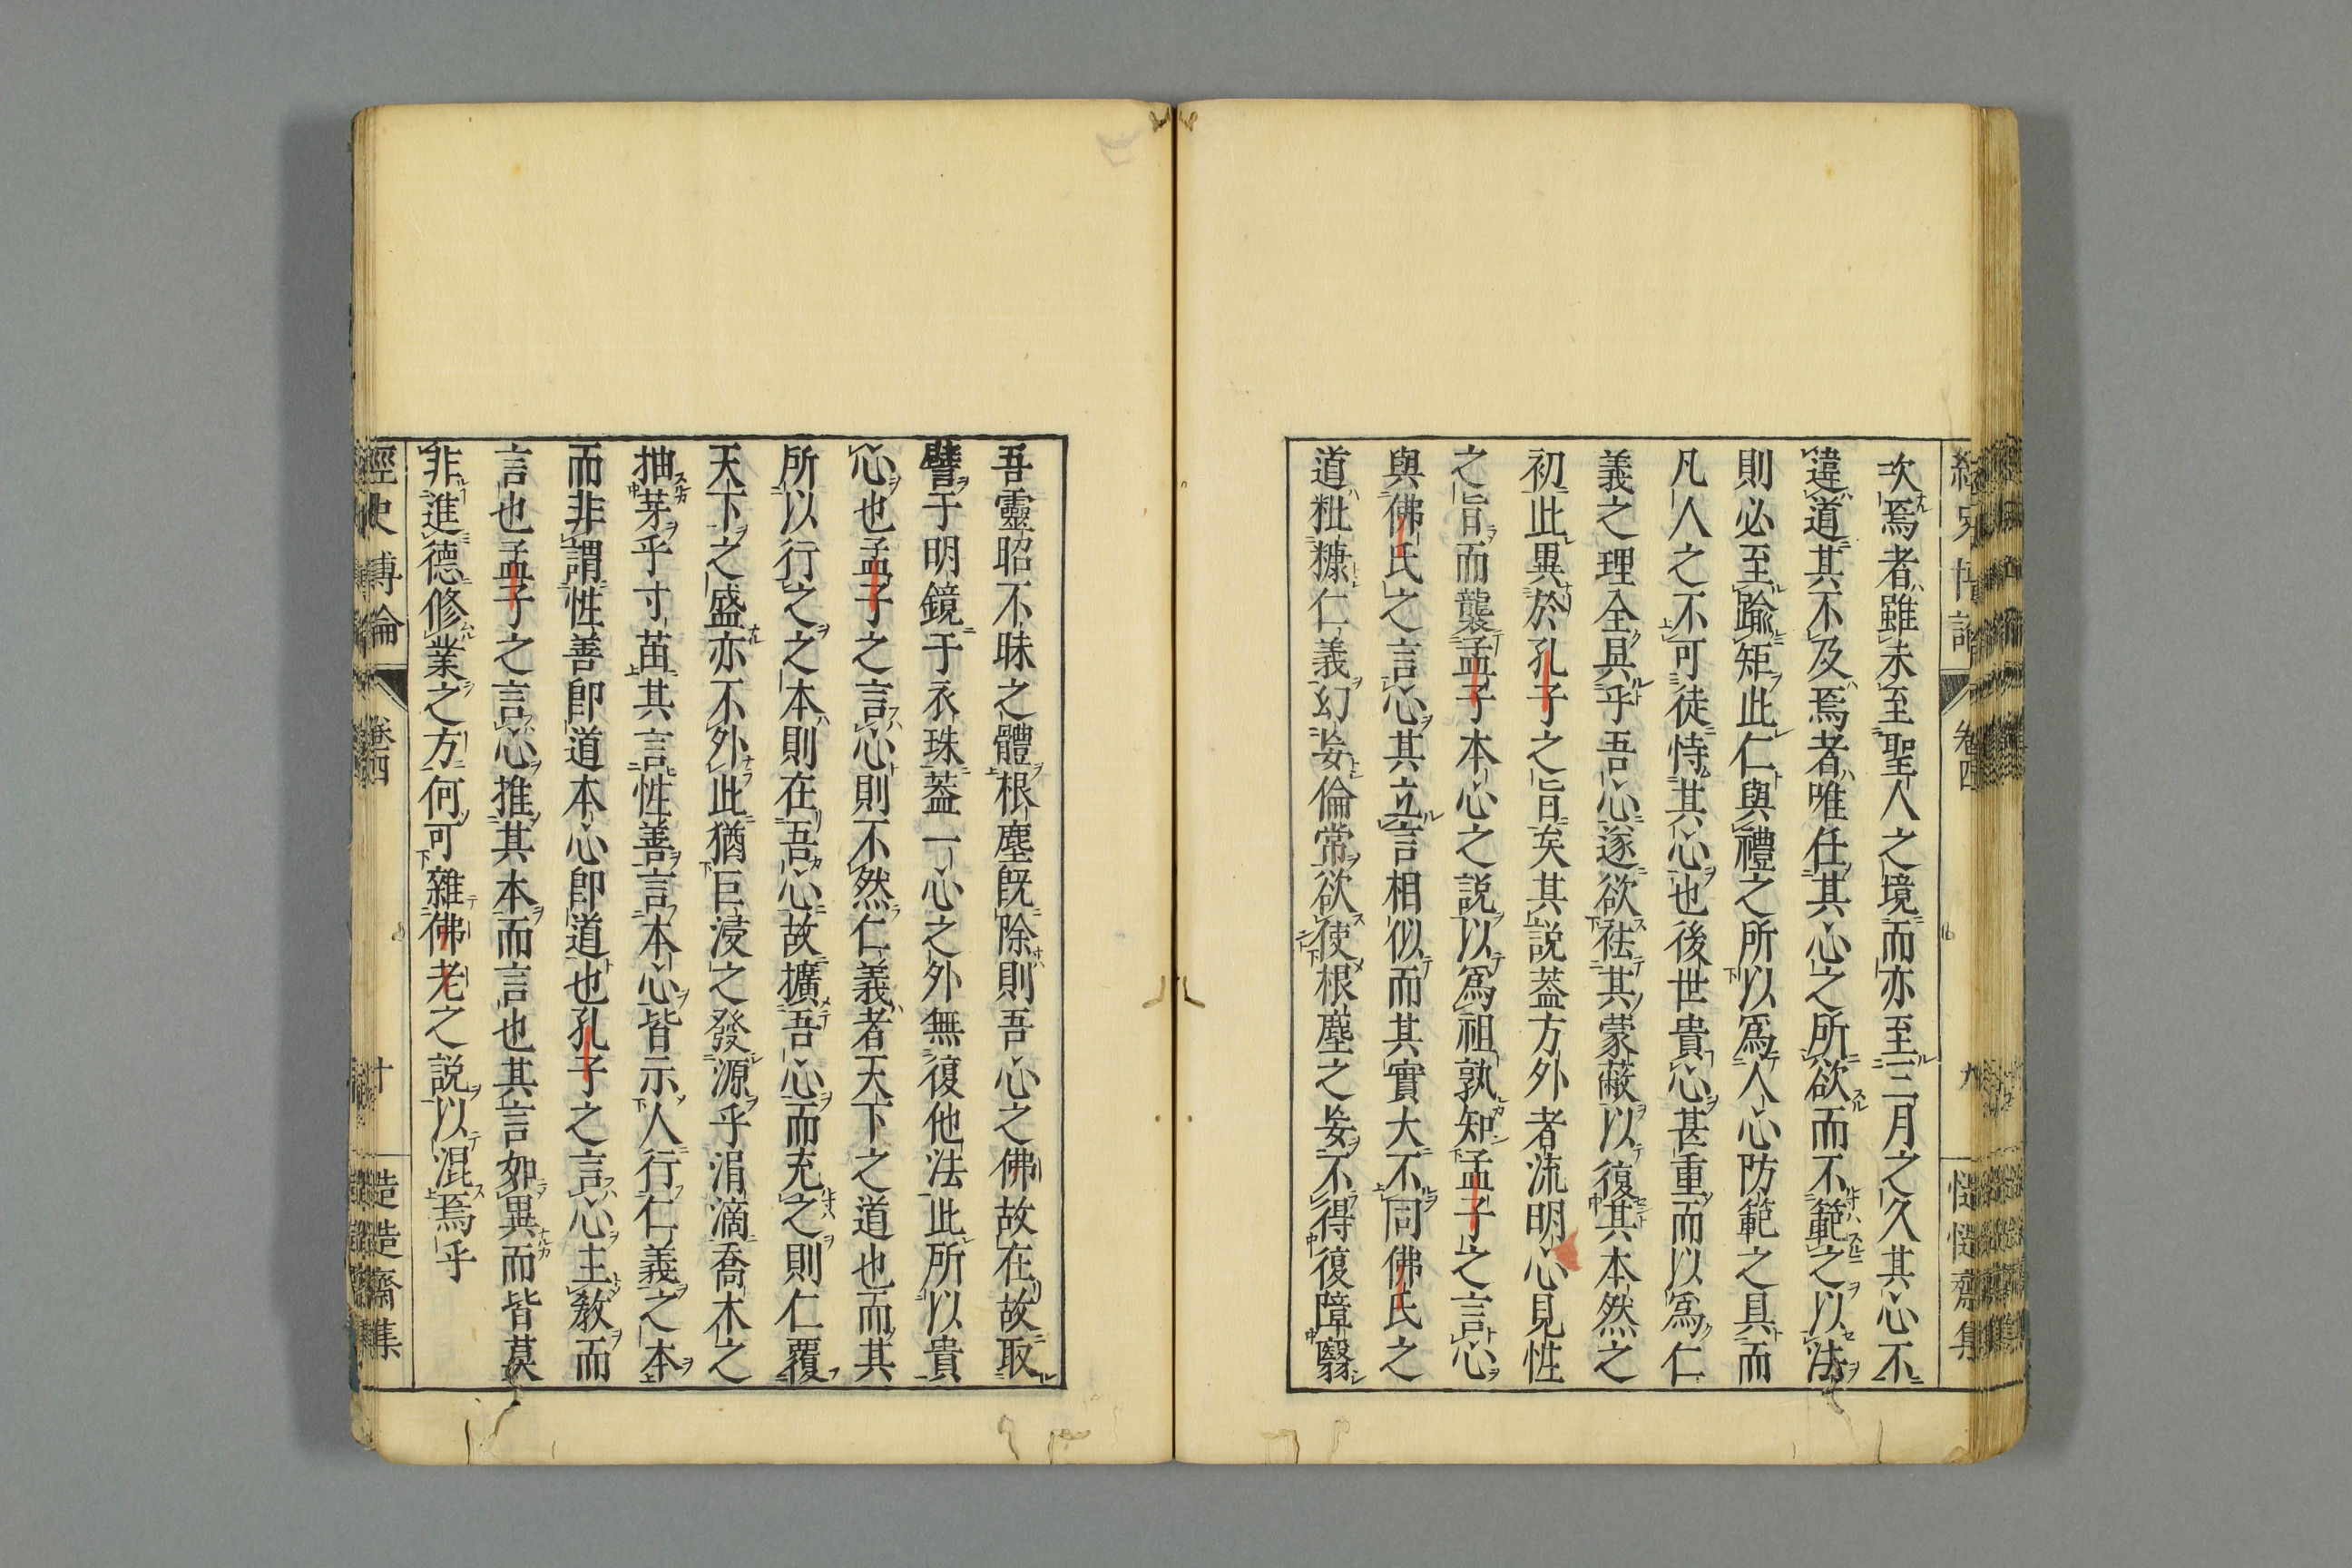 次焉者雖未至聖人之境而亦至三月之久其心不
違道其不及焉者唯任其心之所欲而不範之以法
則必至踰矩此仁與禮之所以爲人心防範之具而
凡人之不可徒恃其心也後世貴心甚重而以爲仁
義之理全具乎吾心遂欲祛其蒙蔽以復其本然之
初此異於孔子之旨矣其説葢方外者流明心見性
之旨而襲孟子本心之説以爲祖孰知孟子之言心
與佛氏之言心其立言相似而其實大不同佛氏之
道粃糠仁義幻妄倫常欲使根塵之妄不得復障翳
吾靈昭不昧之體根塵既除則吾心之佛故在故取
譬于明鏡于衣珠葢一心之外無復他法此所以貴
心也孟子之言心則不然仁義者天下之道也而其
所以行之之本則在吾心故擴吾心而充之則仁覆
天下之盛亦不外此猶巨浸之發源乎涓滴喬木之
抽芽乎寸茁其言性善言本心皆示人行仁義之本
而非謂性善卽道本心卽道也孔子之言心主敎而
言也孟子之言心推其本而言也其言如異而皆莫
非進德修業之方何可雜佛老之説以混焉乎
經史博論
卷四
十